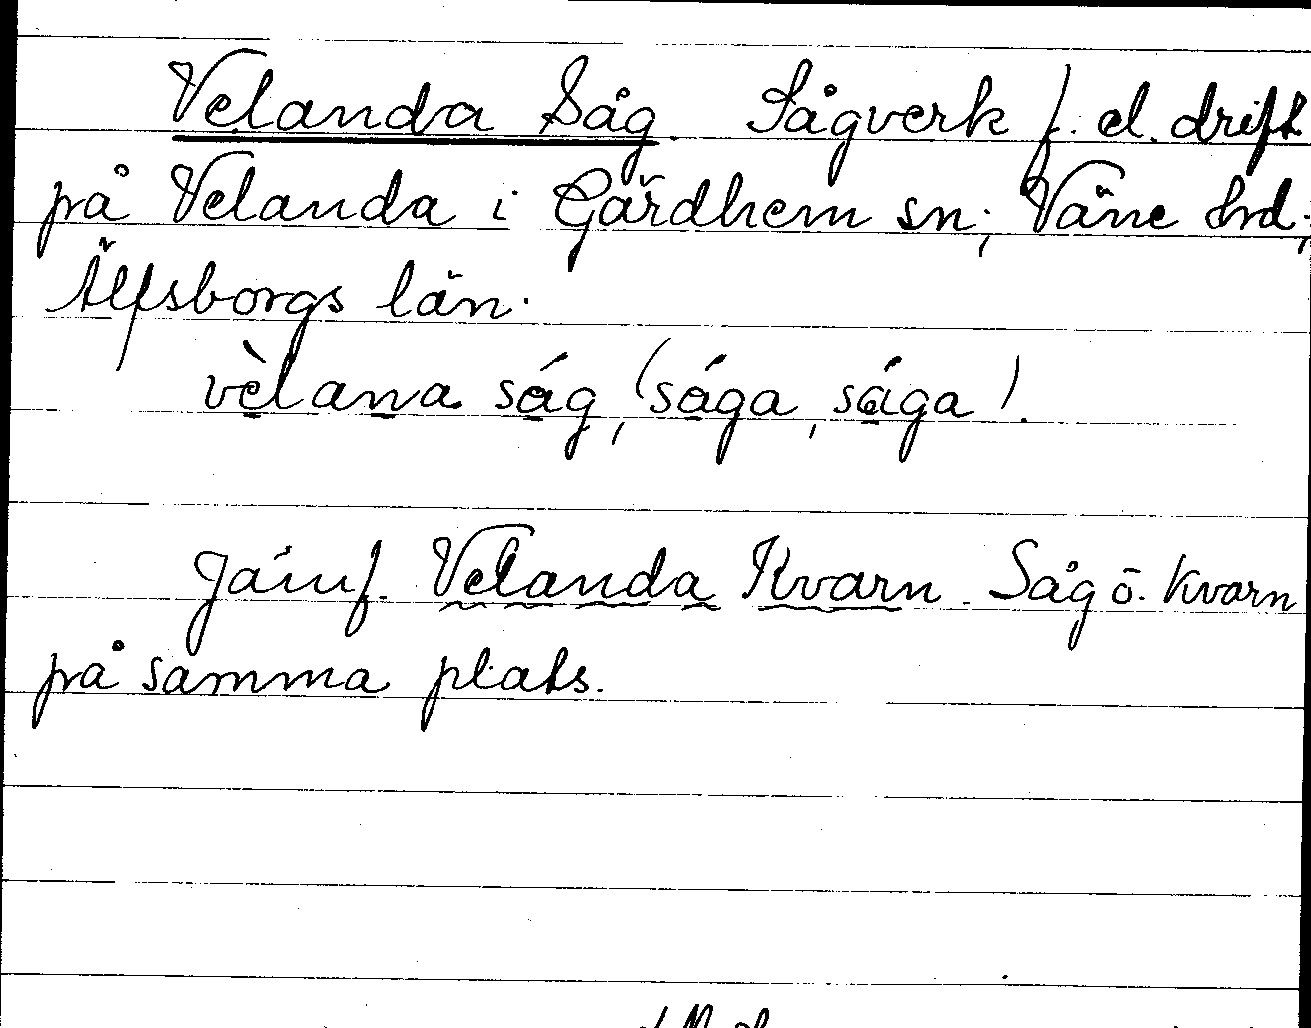 Velanda Såg. Sågverk f. el. drift
på Velanda i Gärdhem sn; Väne hd;
Älfsborgs län.
vèlana såg, (sága, sága).
Jämf. Velanda Kvarn. Såg o. Kvarn
på samma plats.